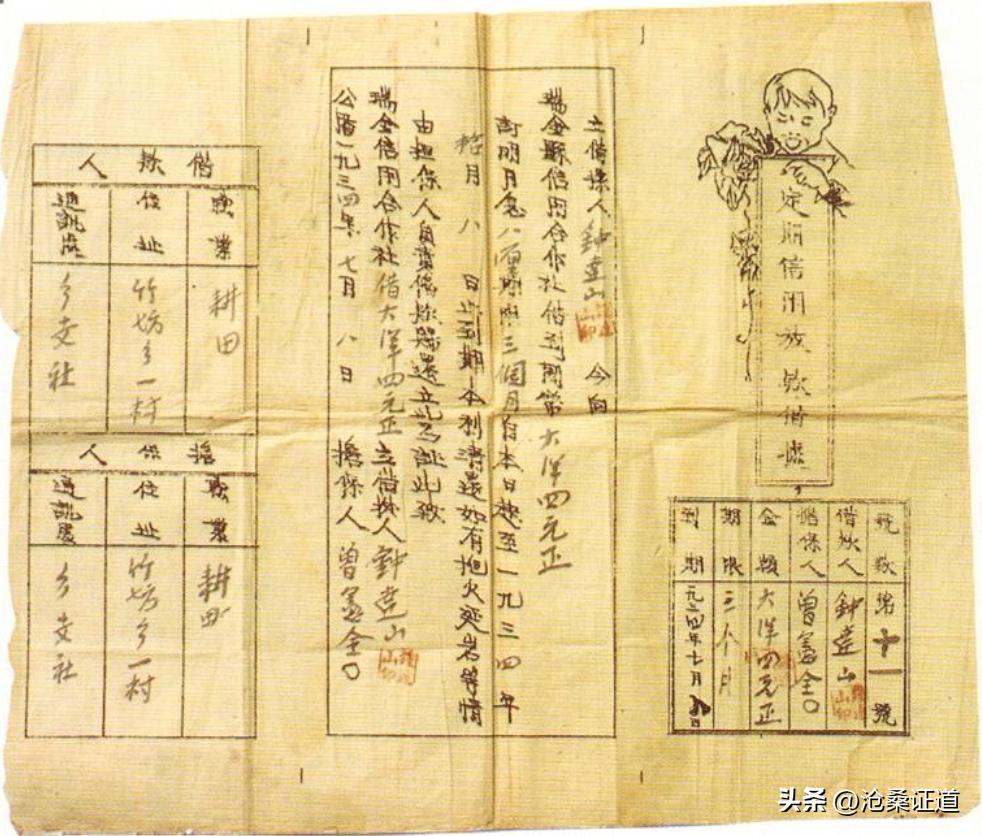 定期信用放款借據
號數 第十一號
借款人 鈡達山
擔保人 曾憲全〇
金額 大洋四元正
期限 三个月
到期 一九三四年十月八日
立借據人鈡達山 今向
瑞金縣信用合作社借到國幣大洋四元正
訂明月息八 三個月自本日起至一九三四年
拾月八日止到期本利清還如有拖欠延 等情
由担保人負責償款歸還立此為証此致
瑞金信用合作社借大洋四元正立借款人鈡達山
公曆一九三四年七月八日 擔保人曾憲全〇
借款人
職業 耕田
住址 竹坊乡一村
通訊處 乡支社
擔保人
職業 耕田
住址 竹坊乡一村
通訊處 乡支社
头条 @沧桑证道